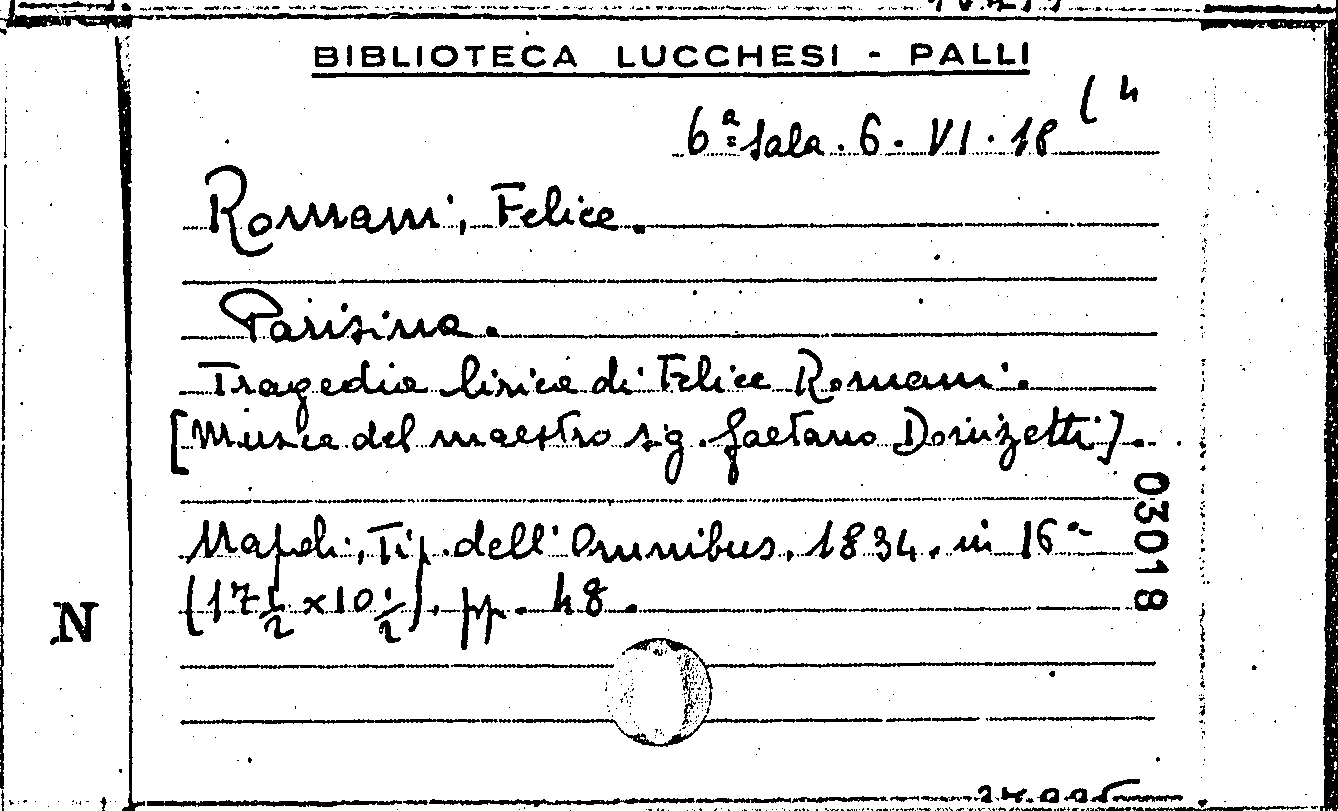 BIBLIOTECA LUCCHESI - PALLI
6ª Sala. 6. VI. 18 (4
Romani, Felice.
Parisina.
Tragedia lirica di Felice Romani.
[Musica del maestro sig. Gaetano Donizetti].
03018
Napoli, Tip. dell'Omnibus, 1834. in 16°
(17 1/2 x 10 1/2). pp. 48.
N